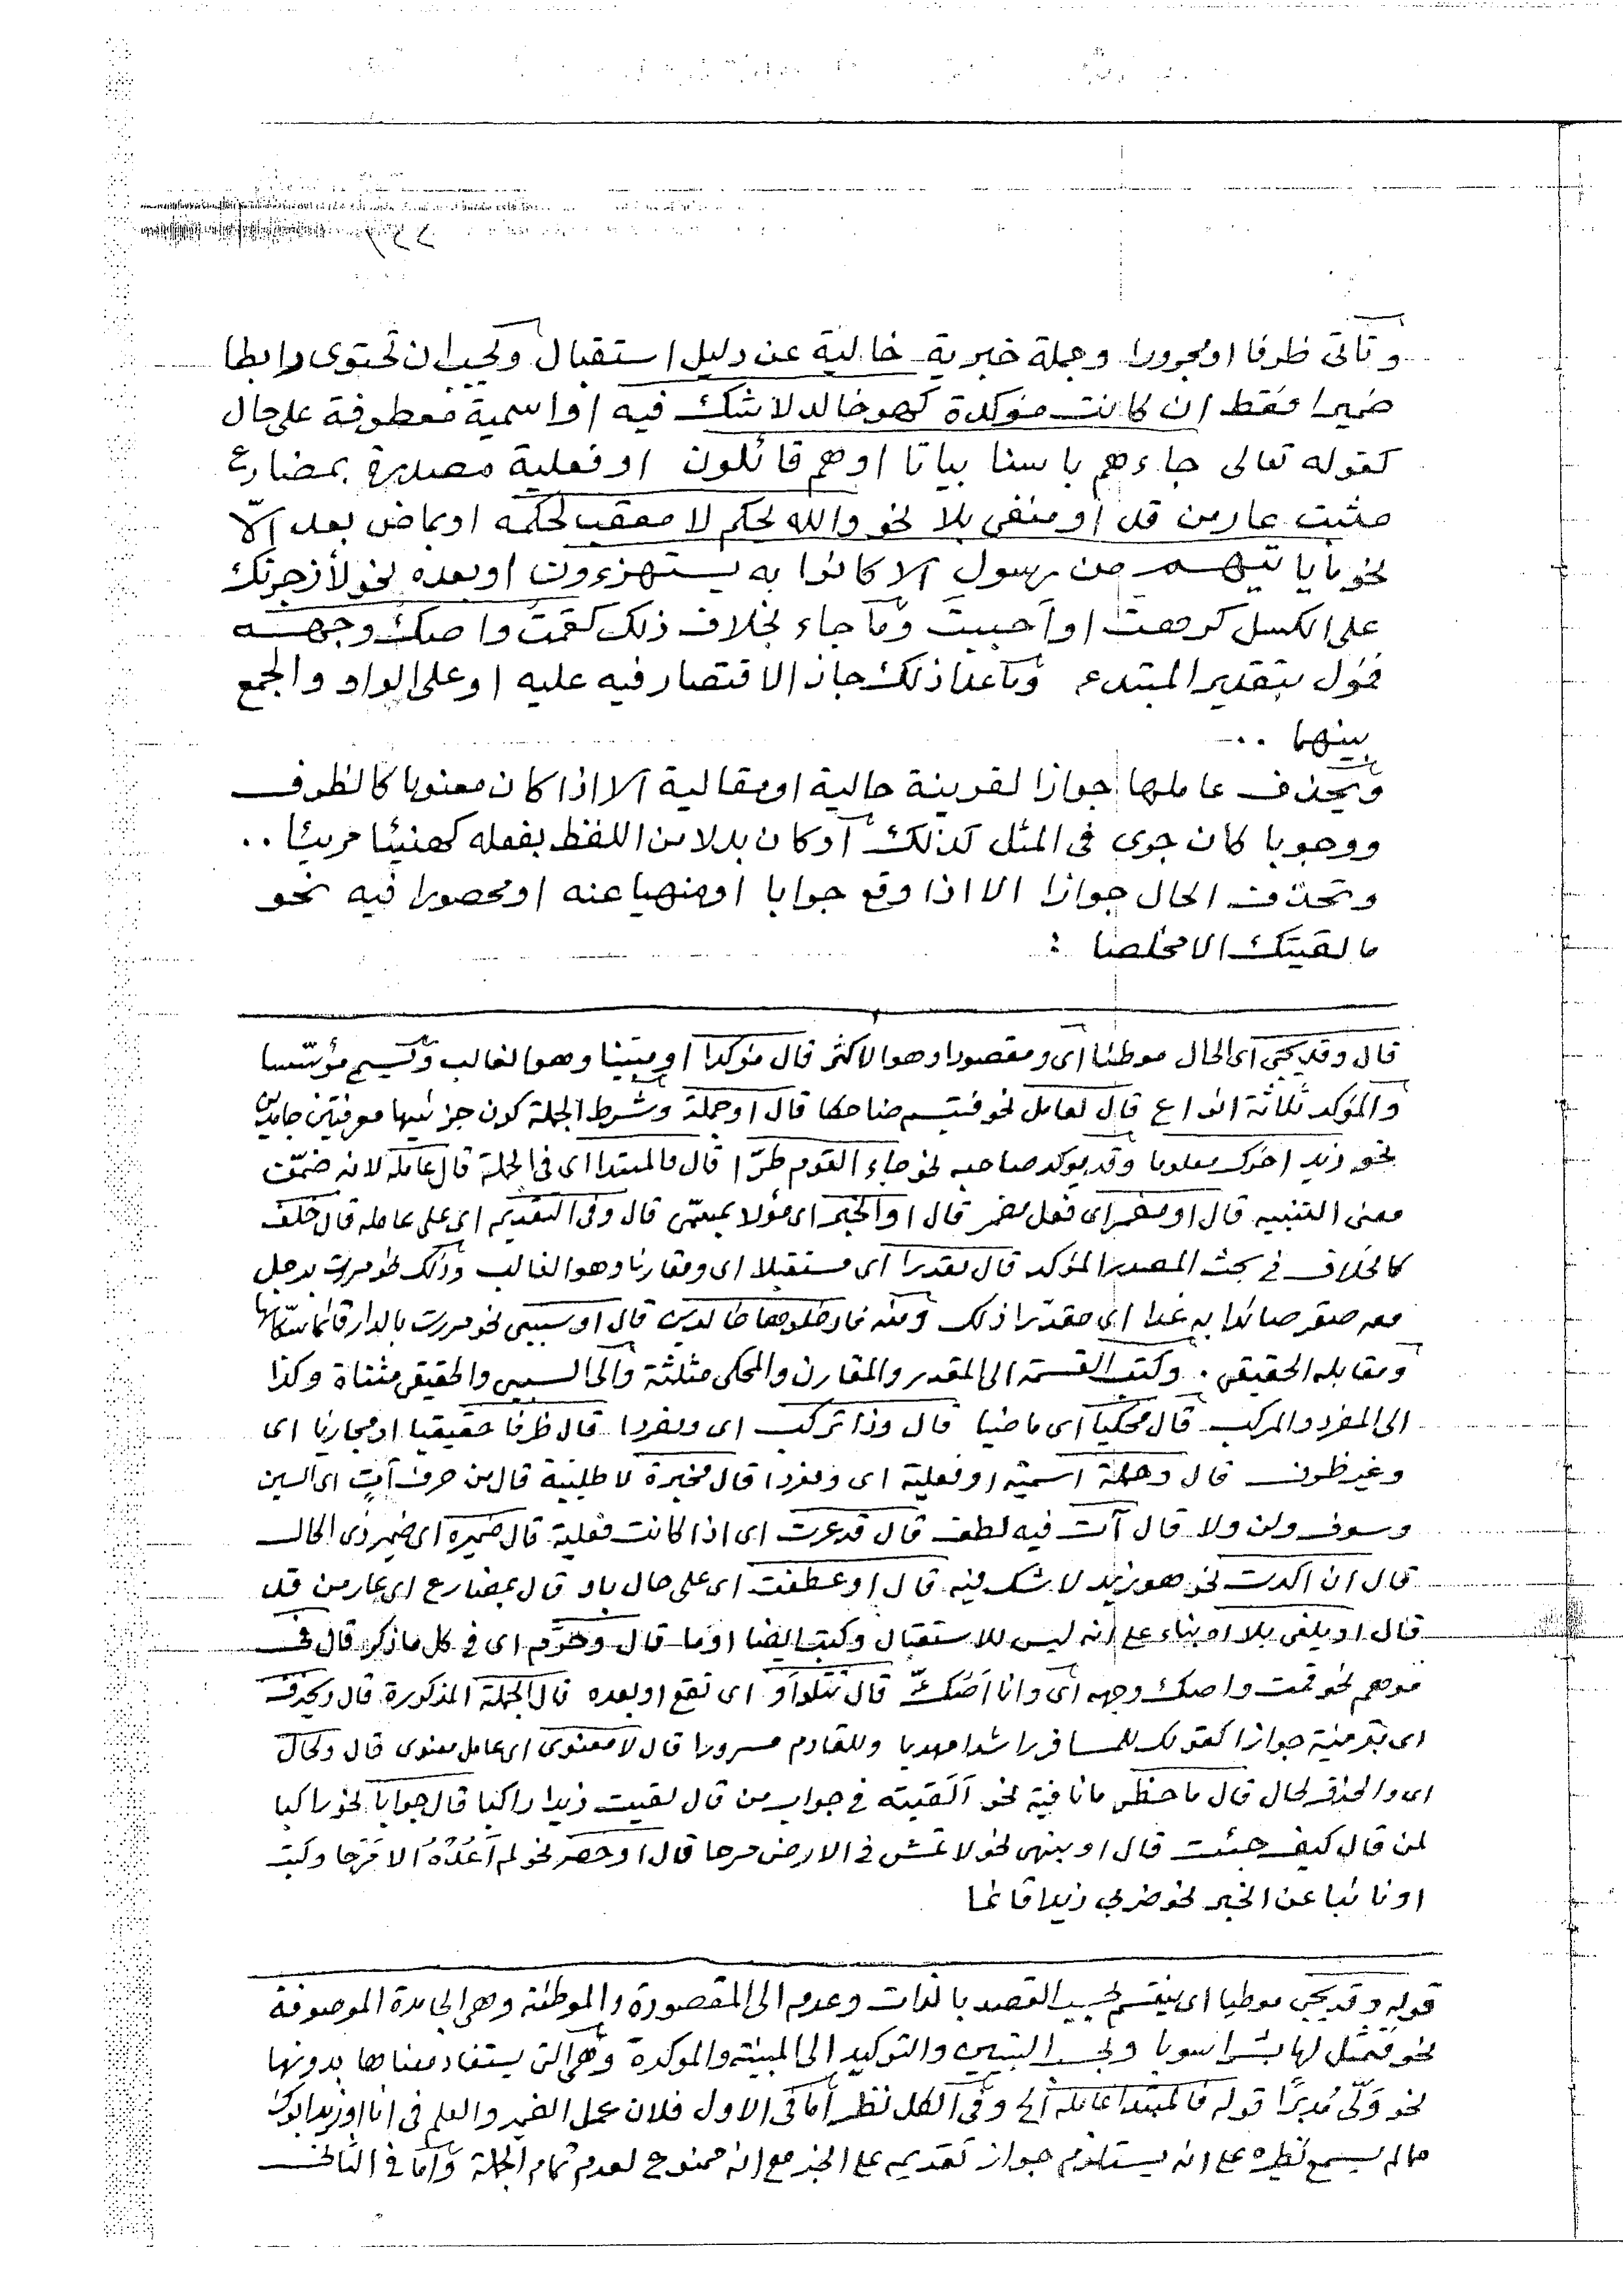 وتأتى ظرفا او مجرورا وجملة خبرية خالية عن دليل استقبال ويجب ان تحتوى رابطا
ضميرا فقط ان كانت مؤكدة كهو خالد لاشك فيه او اسمية معطوفة على حال
كقوله تعالى جاءهم باسنا بياتا اوهم قائلون او فعلية مصدرة بمضارع
مثبت عار من قد او منفى بلا نحو والله يحكم لا معقب لحكمه او بماض بعد الّا
نحو ما ياتيهم من رسول الا كانوا به يستهزءون او بعده نحو لأزجرنك
على الكسل كرهت او احببت وما جاء بخلاف ذلك كقمت واصك وجهه
فؤل بتقدير المبتدء وما عدا ذلك جاز الاقتصار فيه عليه او على الواو والجمع
بينهما ..
ويحذف عاملها جوازا لقرينة حالية او مقالية الا اذا كان معنويا كالظرف
ووجوبا كان جرى فى المثل كذلك او كان بدلا من اللفظ بفعله كهنيئا مريئا ..
وتحذف الحال جوازا الا اذا وقع جوابا او منهيا عنه او محصورا فيه نحو
ما لقيتك الا مخلصا :
قال وقد يجئ اى الحال موطئا اى ومقصودا وهو الاكثر قال مؤكدا او مبينا وهو الغالب ويسمى مؤسّسا
والمؤكد ثلاثة انواع قال لعامل نحو فتبسم ضاحكا قال او جملة وشرط الجملة كون جزئيها معرفتين جامدين
نحو زيد اخوك معلوما وقد يوكد صاحبه نحو جاء القوم طرّا قال فالمبتدا اى فى الجملة قال عامله لانه ضمّت
معنى التنبيه قال او مضمر اى فعل مضمر قال او الخبر اى مؤلا بمسمّى قال وفى التقديم اى على عامله قال خلف
كالخلاف فى بحث المصدر المؤكد قال مقدرا اى مستقبلا اى ومقارنا وهو الغالب وذلك نحو مررت برجل
معه صقر صائدا به غدا اى مقدّرا ذلك ومنه فادخلوها خالدين قال او سببى نحو مررت بالدار قائما سكّانها
ومقابله الحقيقى . وكتب القسمة الى المقدر والمقارن والمحكى مثلثة والى السببى والحقيقى مثناة وكذا
الى المفرد والمركب قال محكيا اى ماضيا قال وذا تركب اى ومفردا قال ظرفا حقيقيا او مجازيا اى
وغير ظرف قال وجملة اسمية او فعلية اى ومفردا قال مخبرة لا طلبية قال من حرف آت اى السين
وسوف ولن ولا قال آت فيه لطف قال قد عرت اى اذا كانت فعلية قال ضميره اى ضمير ذى الحال
قال ان اكدت نحو هو زيد لاشك فيه قال او عطفت اى على حال باو قال بمضارع اى عار من قد
قال او ينفى بلا او بناء على انه ليس للاستقبال وكتب ايضا او ما قال وحرّم اى فى كل ما ذكر قال فى
موهم نحو قمت واصك وجهه اى وانا اصك قال تتلو او اى تقع او بعده قال الجملة المذكورة قال ويحذف
اى بقرينة جوازا كقولك للمسافر راشدا مهديا وللقادم مسرورا قال لا معنوى اى عامل معنوى قال وكحال
اى والحذف لحال قال ما حظر ما نافية نحو القيته فى جواب من قال لقيت زيدا راكبا قال جوابا نحو راكبا
لمن قال كيف جئت قال او بنهى نحو لا تمش فى الارض مرحا قال او حصر نحو لم اعُدْهُ الا فرحا وكتب
او نائبا عن الخبر نحو ضربى زيدا قائما
قوله وقد يجئ موطيا اى ينقسم بحسب القصد بالذات وعدمه الى المقصودة والموطئة وهى الجامدة الموصوفة
نحو فتمثل لها بشرا سويا وبحسب التبيين والتوكيد الى المبينة والموكدة وهى التى يستفاد معناها بدونها
نحو وَلّى مُدبرًا قوله فالمبتدا عامله الخ وفى الكل نظر اما فى الاول فلان عمل الضمير والعلم فى انا او زيد ابوك
مما لم يسمع نظيره على انه يستلزم جواز تقديمه على الخبر مع انه ممنوع لعدم تمام الجملة واما فى الثانى